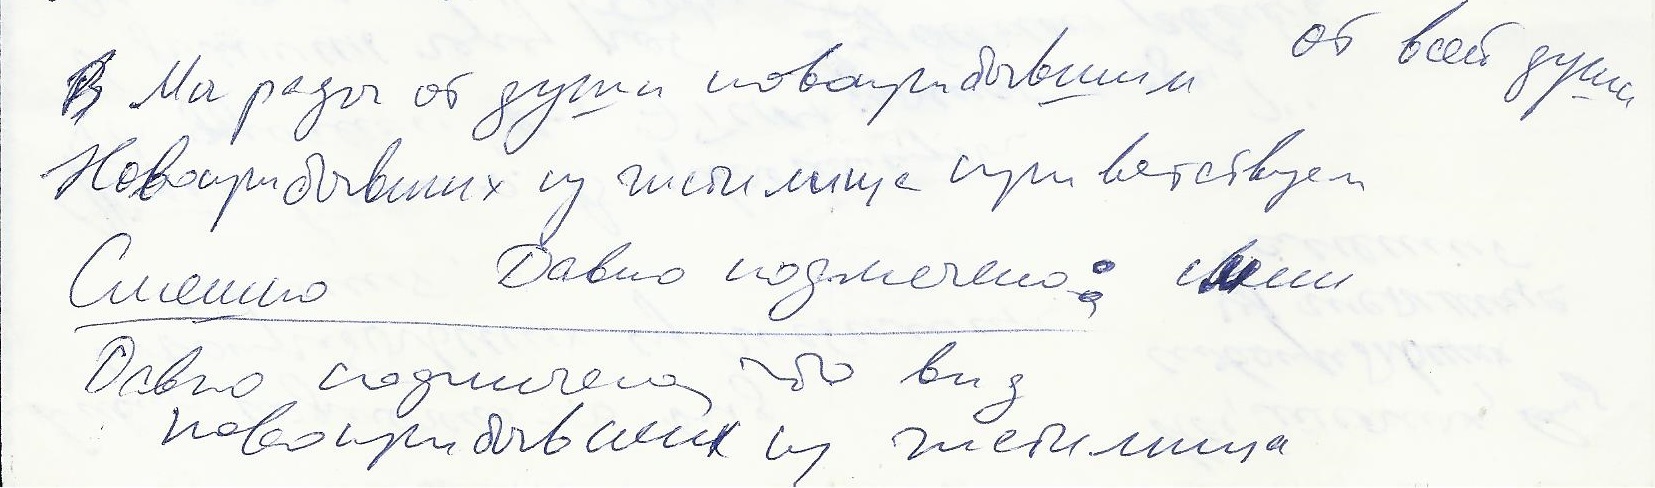 В Мы рады от души новоприбывшим от всей души
Новоприбывших из чистилища приветствуем
Смешно Давно подмечено:
Давно подмечено, что вид
новоприбывших из чистилища